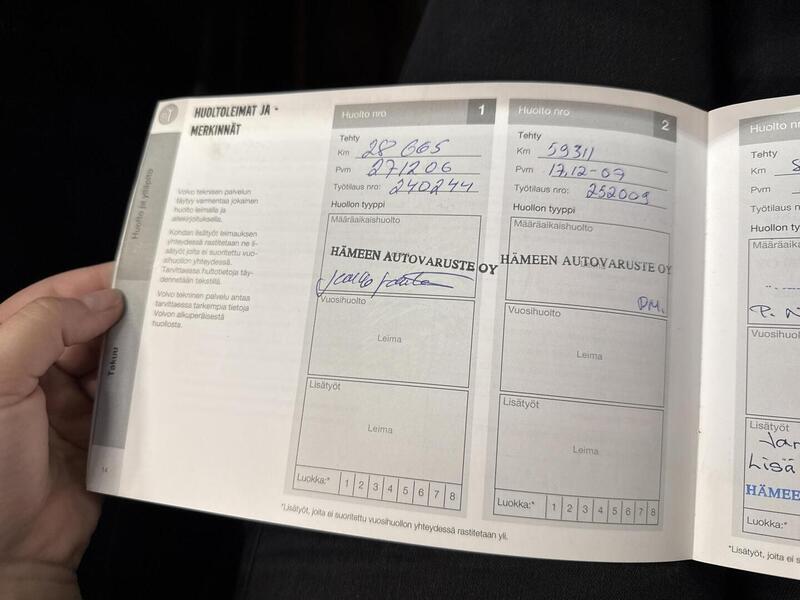 HUOLTOLEIMAT JA
MERKINNÄT
Huolto ja ylläpito
Takuu
Volvo teknisen palvelun
täytyy varmentaa jokainen
huolto leimalla ja
allekirjoituksella.
Kohdan lisätyöt leimauksen
yhteydessä rastitetaan ne li-
sätyöt joita ei suoritettu vuo-
sihuollon yhteydessä.
Tarvittaessa huoltotietoja täy-
dennetään tekstillä.
Volvo tekninen palvelu antaa
tarvittaessa tarkempia tietoja
Volvon alkuperäisestä
huollosta.
14
Huolto nro 1
Tehty
Km 28 665
Pvm 271206
Työtilaus nro: 240244
Huollon tyyppi
Määräaikaishuolto
HÄMEEN AUTOVARUSTE OY
Vuosihuolto
Leima
Lisätyöt
Leima
Luokka:* 1 2 3 4 5 6 7 8
Huolto nro 2
Tehty
Km 59311
Pvm 17.12-07
Työtilaus nro: 252009
Huollon tyyppi
Määräaikaishuolto
HÄMEEN AUTOVARUSTE OY
DM.
Vuosihuolto
Leima
Lisätyöt
Leima
Luokka:* 1 2 3 4 5 6 7 8
*Lisätyöt, joita ei suoritettu vuosihuollon yhteydessä rastitetaan yli.
Huolto nr
Tehty
Km
Pvm
Työtilaus n
Huollon ty
Määräaika
P.
Vuosihuolto
Lisätyöt
Lisä
HÄMEE
Luokka:*
*Lisätyöt, joita ei